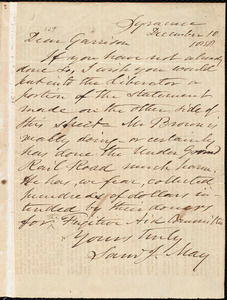 Syracuse
December 10
1858
Dear Garrison
If you have not already
done so, I wish you would
put into the Liberator a
portion of the statement
made on the other side of
this sheet. Mr Brown is
doing or certainly
has done the Under Ground
Rail-Road much harm.
He has, we fear, collected
hundreds of dollars in-
tended by the donors
for Fugitive Aid Committee
Yours truly
Saml J. May